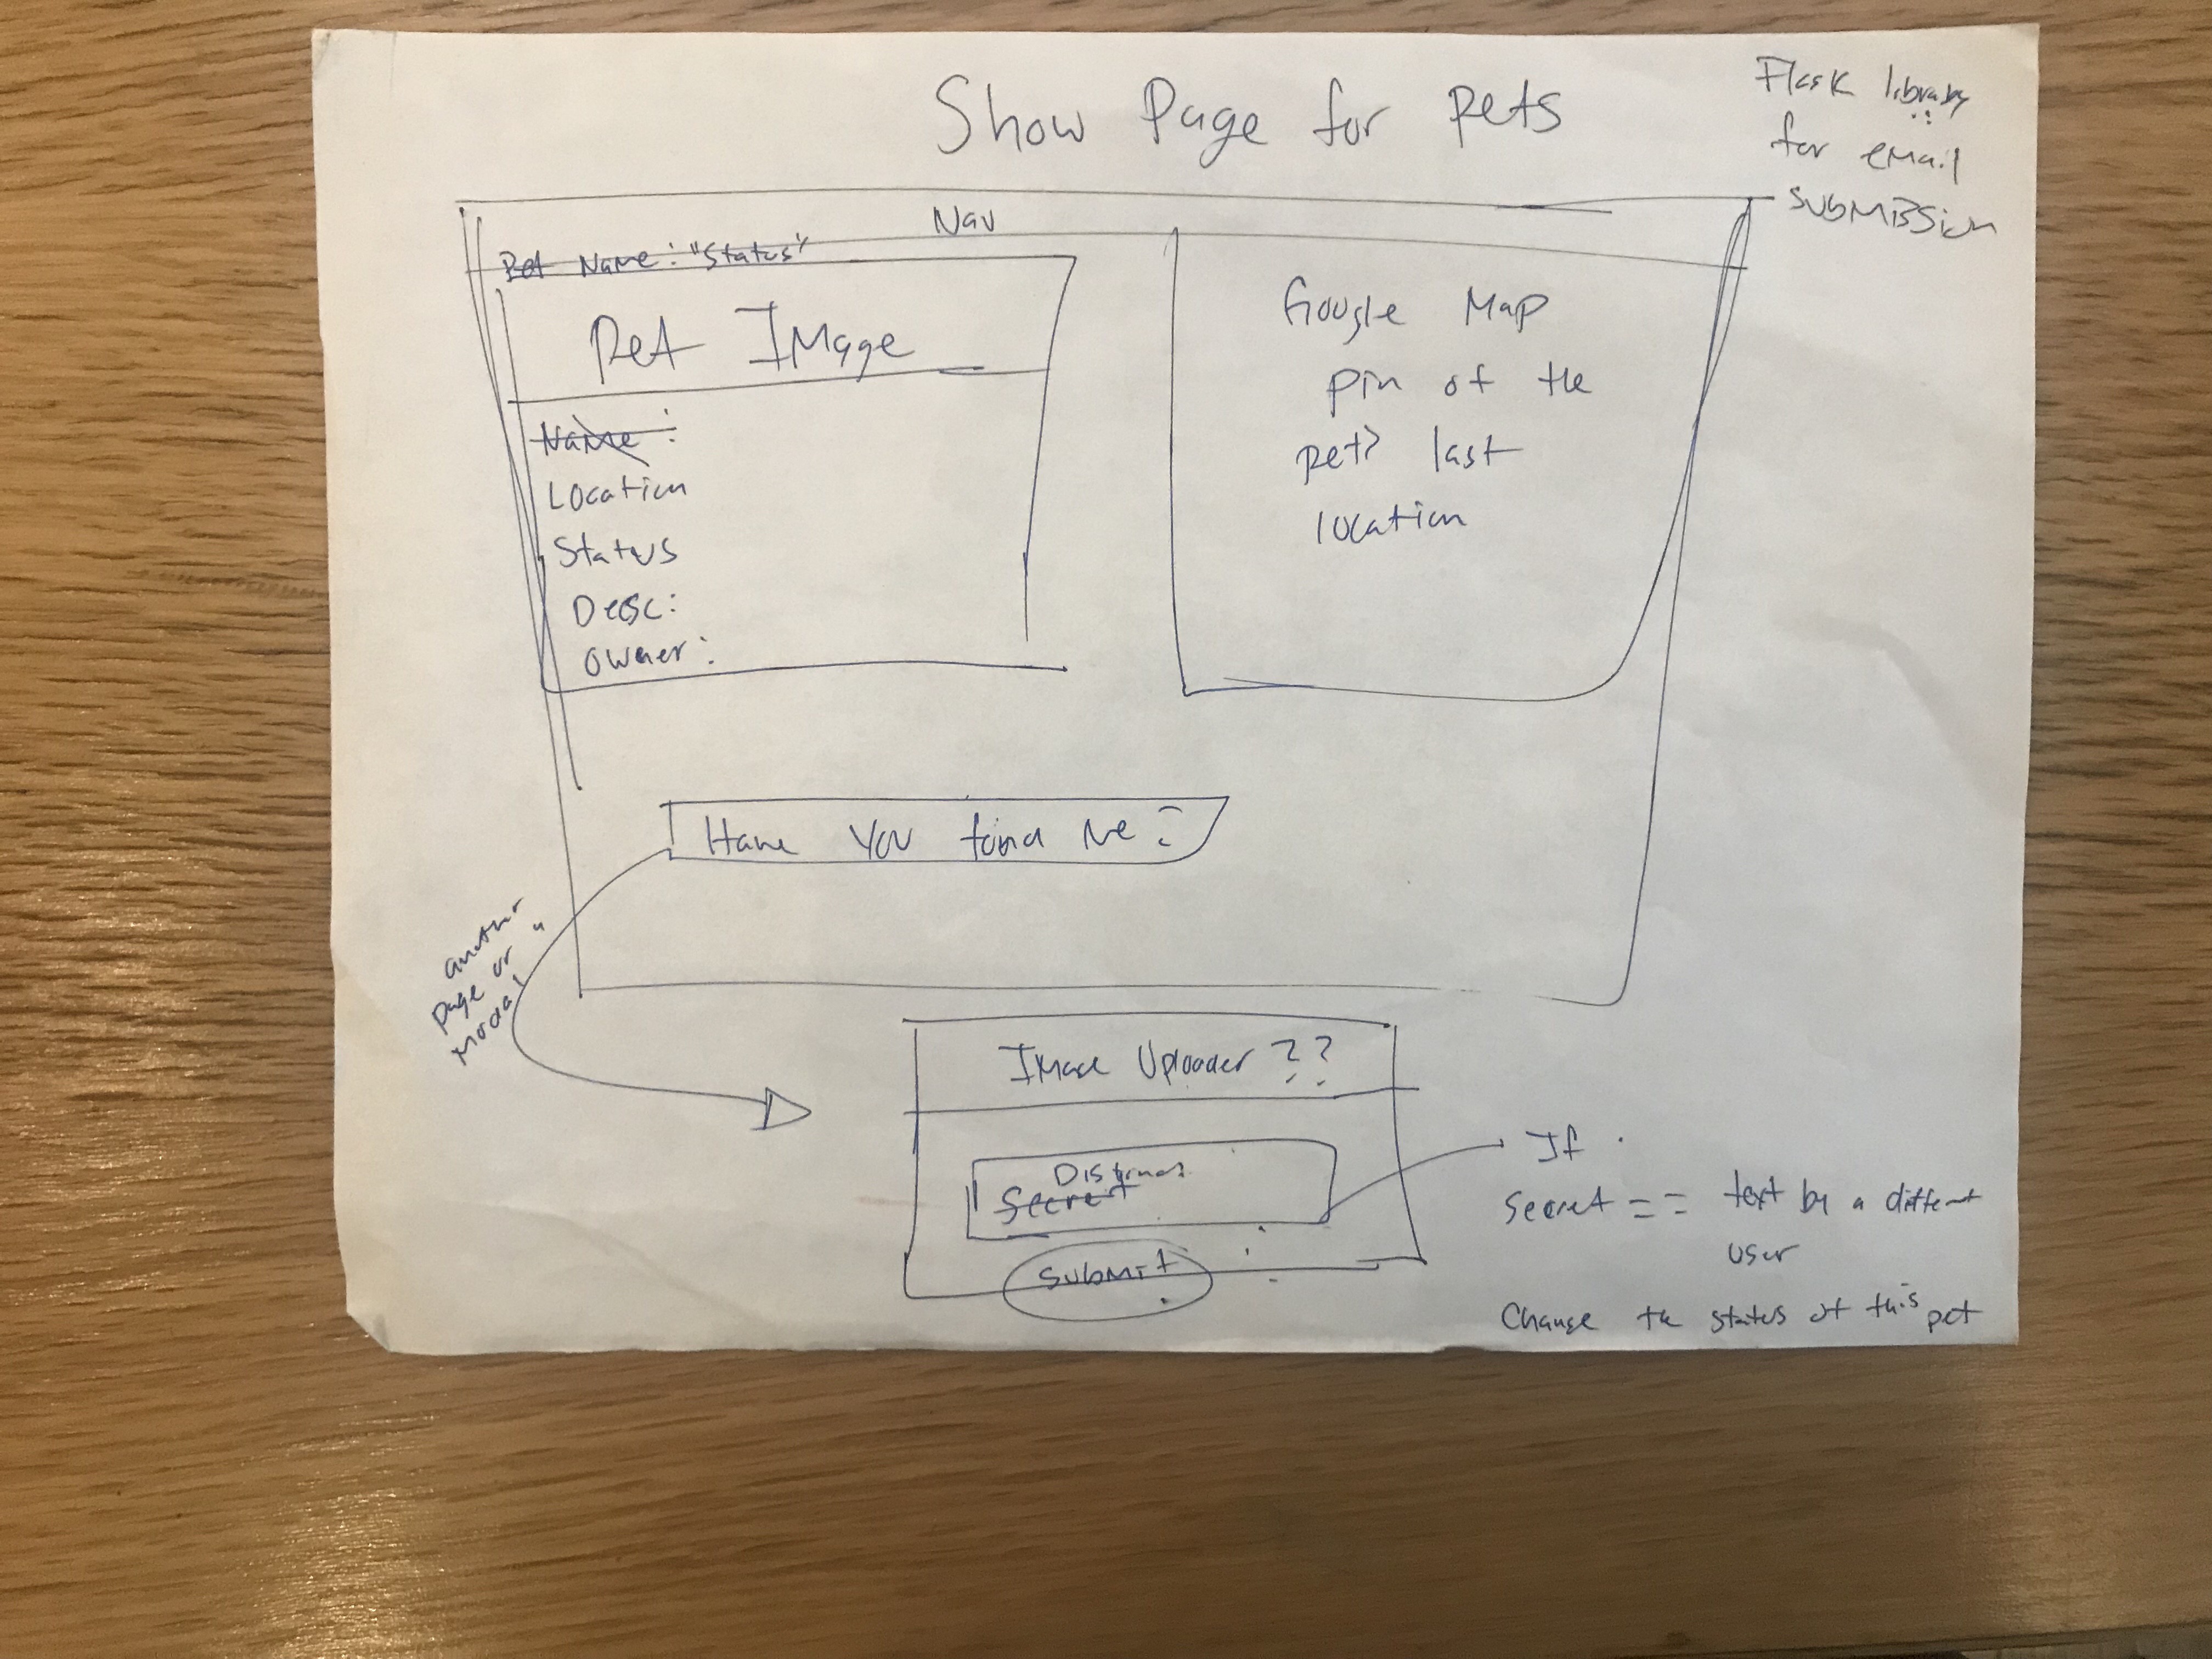 Show Page for Pets
Flask library
for email
submission
Nav
Pet Name: "Status"
Pet Image
Name:
Location
Status
Desc:
Owner:
Google Map
pin of the
pets last
location
Have you found me?
another
page or a
modal
Image Uploader??
Secret
Submit
If
secret == text by a different
user
Change the status of this pet